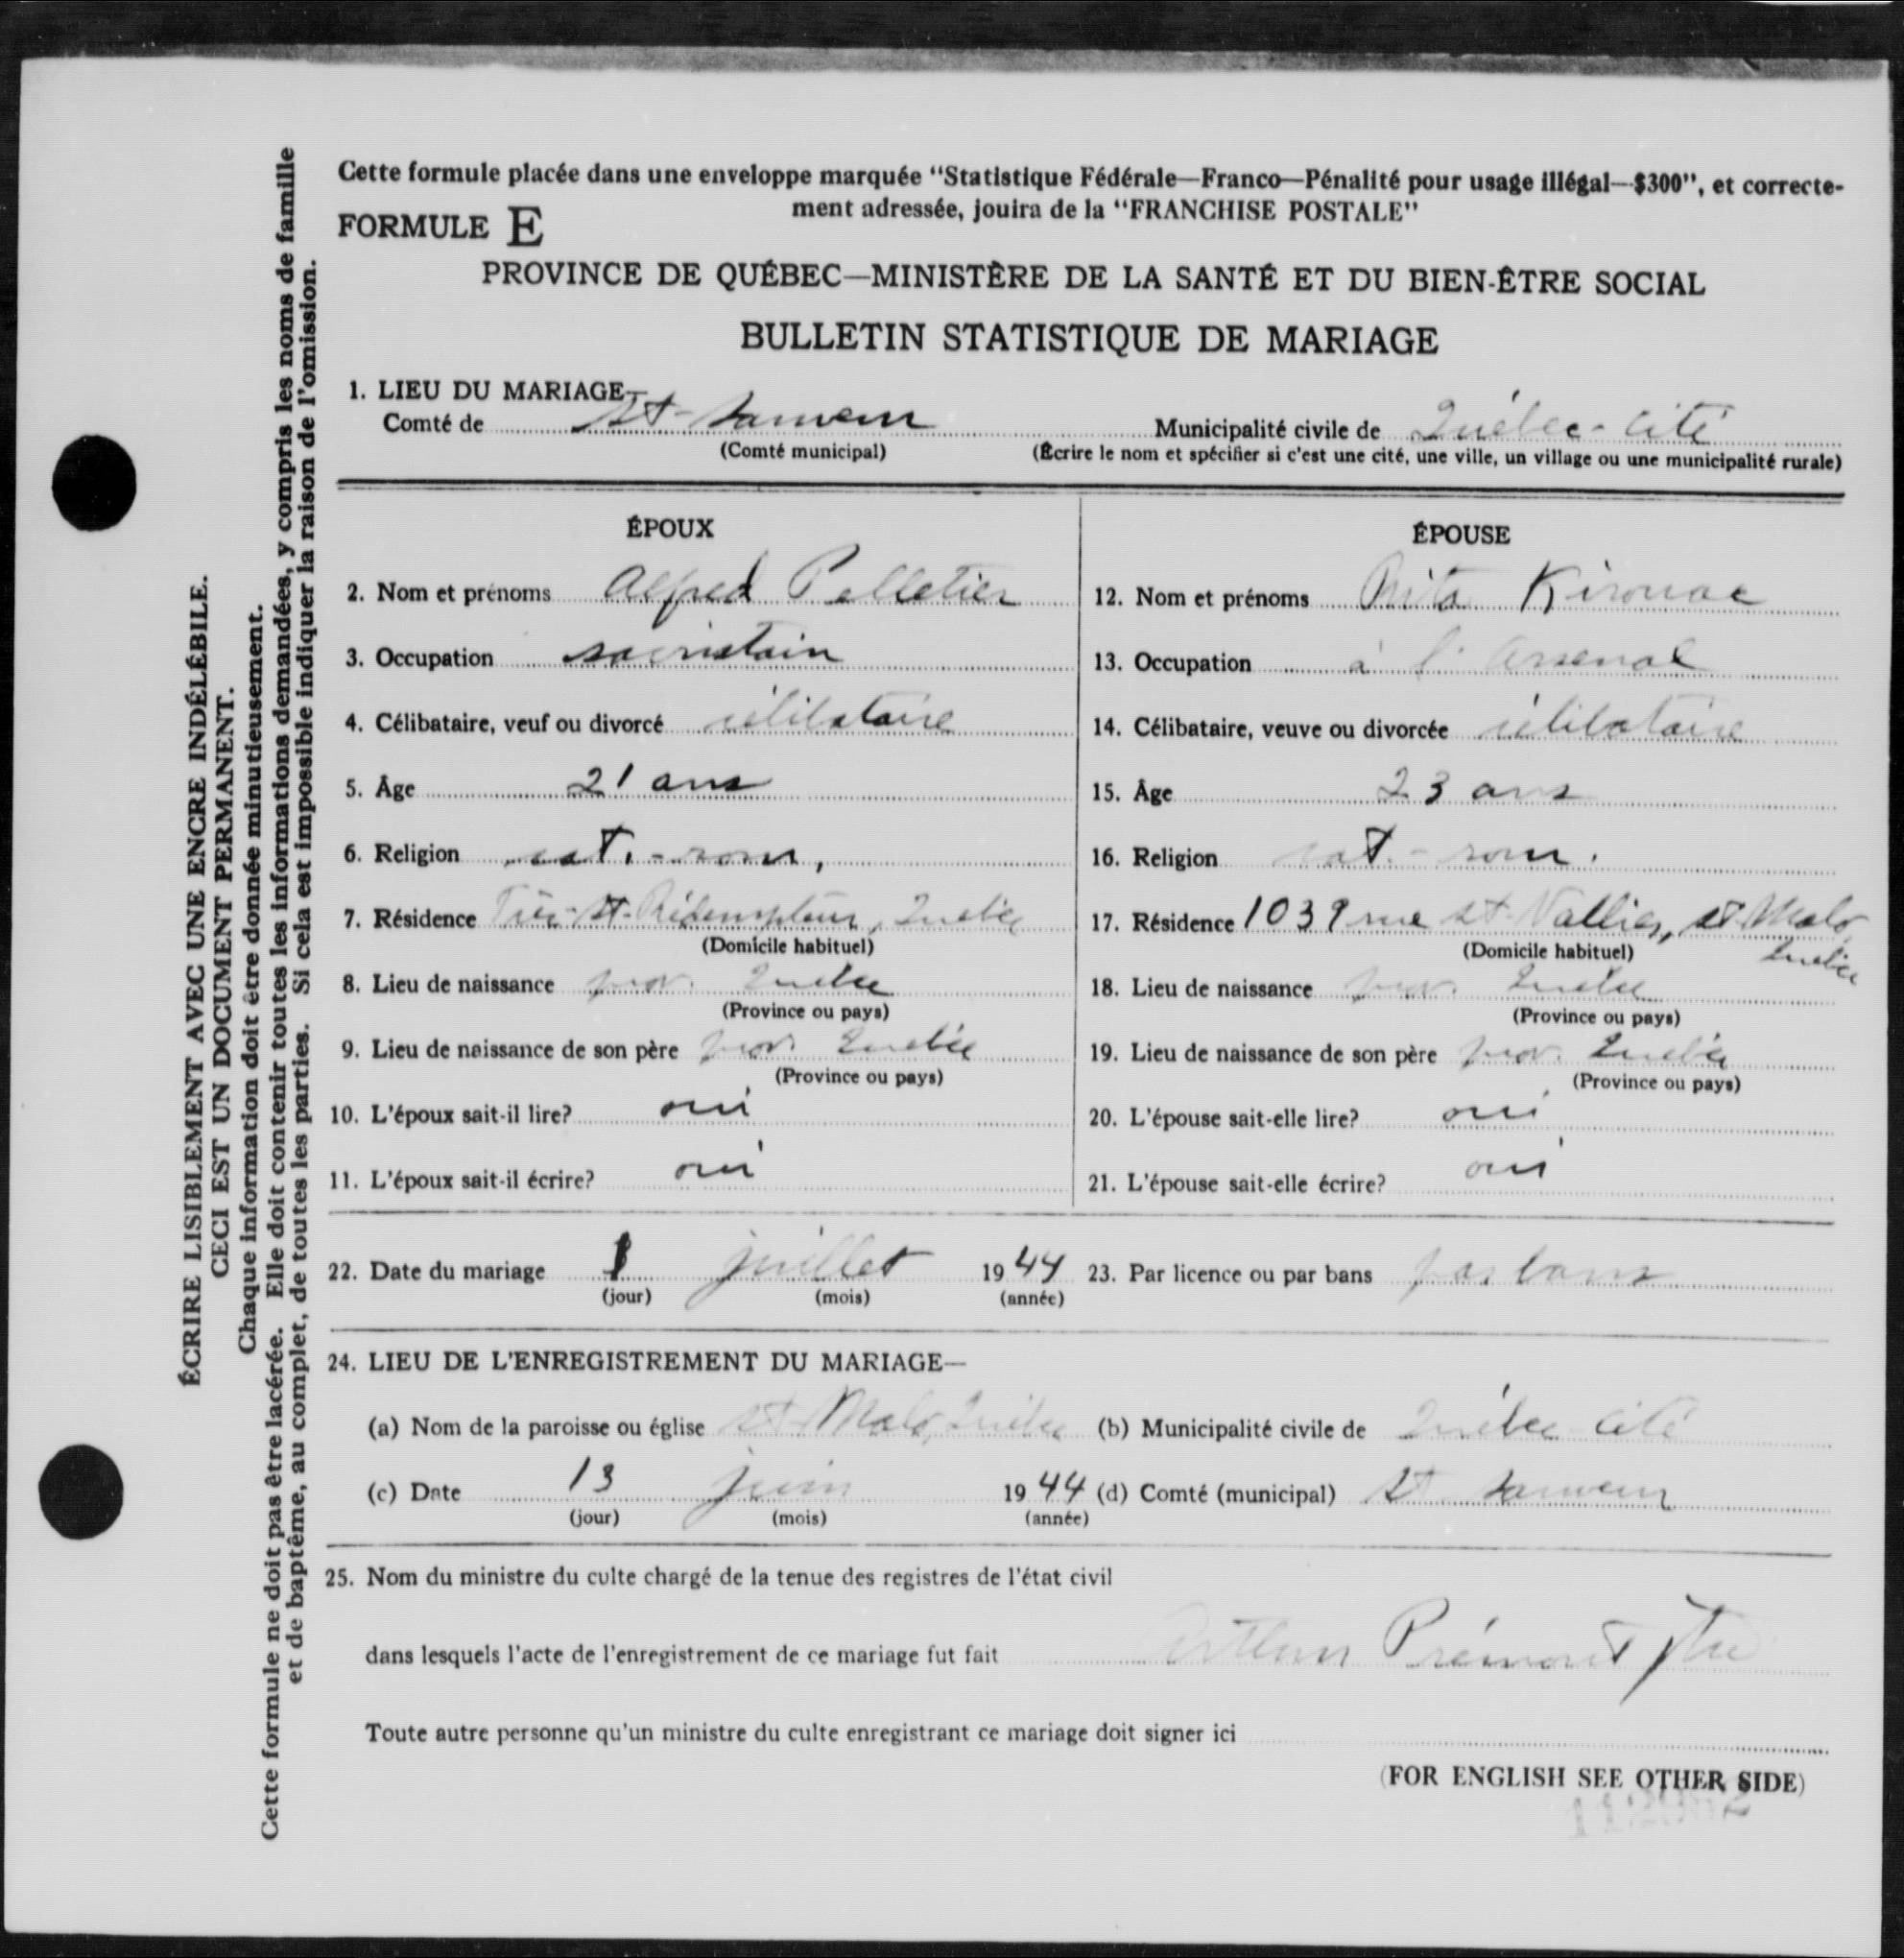 Cette formule placée dans une enveloppe marquée "Statistique Fédérale—Franco—Pénalité pour usage illégal—$300", et correcte-
ment adressée, jouira de la "FRANCHISE POSTALE"
FORMULE E
PROVINCE DE QUÉBEC—MINISTÈRE DE LA SANTÉ ET DU BIEN-ÊTRE SOCIAL
BULLETIN STATISTIQUE DE MARIAGE
1. LIEU DU MARIAGE—
Comté de St-Sauveur Municipalité civile de Québec-Cité
(Comté municipal) (Écrire le nom et spécifier si c'est une cité, une ville, un village ou une municipalité rurale)
ÉPOUX
2. Nom et prénoms Alfred Pelletier
3. Occupation sacristain
4. Célibataire, veuf ou divorcé célibataire
5. Âge 21 ans
6. Religion cat.-rom,
7. Résidence Très-St-Rédempteur, Québec
(Domicile habituel)
8. Lieu de naissance prov. Québec
(Province ou pays)
9. Lieu de naissance de son père prov. Québec
(Province ou pays)
10. L'époux sait-il lire? oui
11. L'époux sait-il écrire? oui
ÉPOUSE
12. Nom et prénoms Rita Kirouac
13. Occupation à l'Arsenal
14. Célibataire, veuve ou divorcée célibataire
15. Âge 23 ans
16. Religion cat.-rom.
17. Résidence 1039 rue St-Vallier, St Malo,
Québec
(Domicile habituel)
18. Lieu de naissance prov. Québec
(Province ou pays)
19. Lieu de naissance de son père prov. Québec
(Province ou pays)
20. L'épouse sait-elle lire? oui
21. L'épouse sait-elle écrire? oui
22. Date du mariage 1 juillet 1944 23. Par licence ou par bans par bans
(jour) (mois) (année)
24. LIEU DE L'ENREGISTREMENT DU MARIAGE—
(a) Nom de la paroisse ou église St-Malo, Québec (b) Municipalité civile de Québec-Cité
(c) Date 13 juin 1944 (d) Comté (municipal) St Sauveur
(jour) (mois) (année)
25. Nom du ministre du culte chargé de la tenue des registres de l'état civil
dans lesquels l'acte de l'enregistrement de ce mariage fut fait Arthur Prémont Ptre
Toute autre personne qu'un ministre du culte enregistrant ce mariage doit signer ici
(FOR ENGLISH SEE OTHER SIDE)
ÉCRIRE LISIBLEMENT AVEC UNE ENCRE INDÉLÉBILE.
CECI EST UN DOCUMENT PERMANENT.
Chaque information doit être donnée minutieusement.
Cette formule ne doit pas être lacérée. Elle doit contenir toutes les informations demandées, y compris les noms de famille
et de baptême, au complet, de toutes les parties. Si cela est impossible indiquer la raison de l'omission.